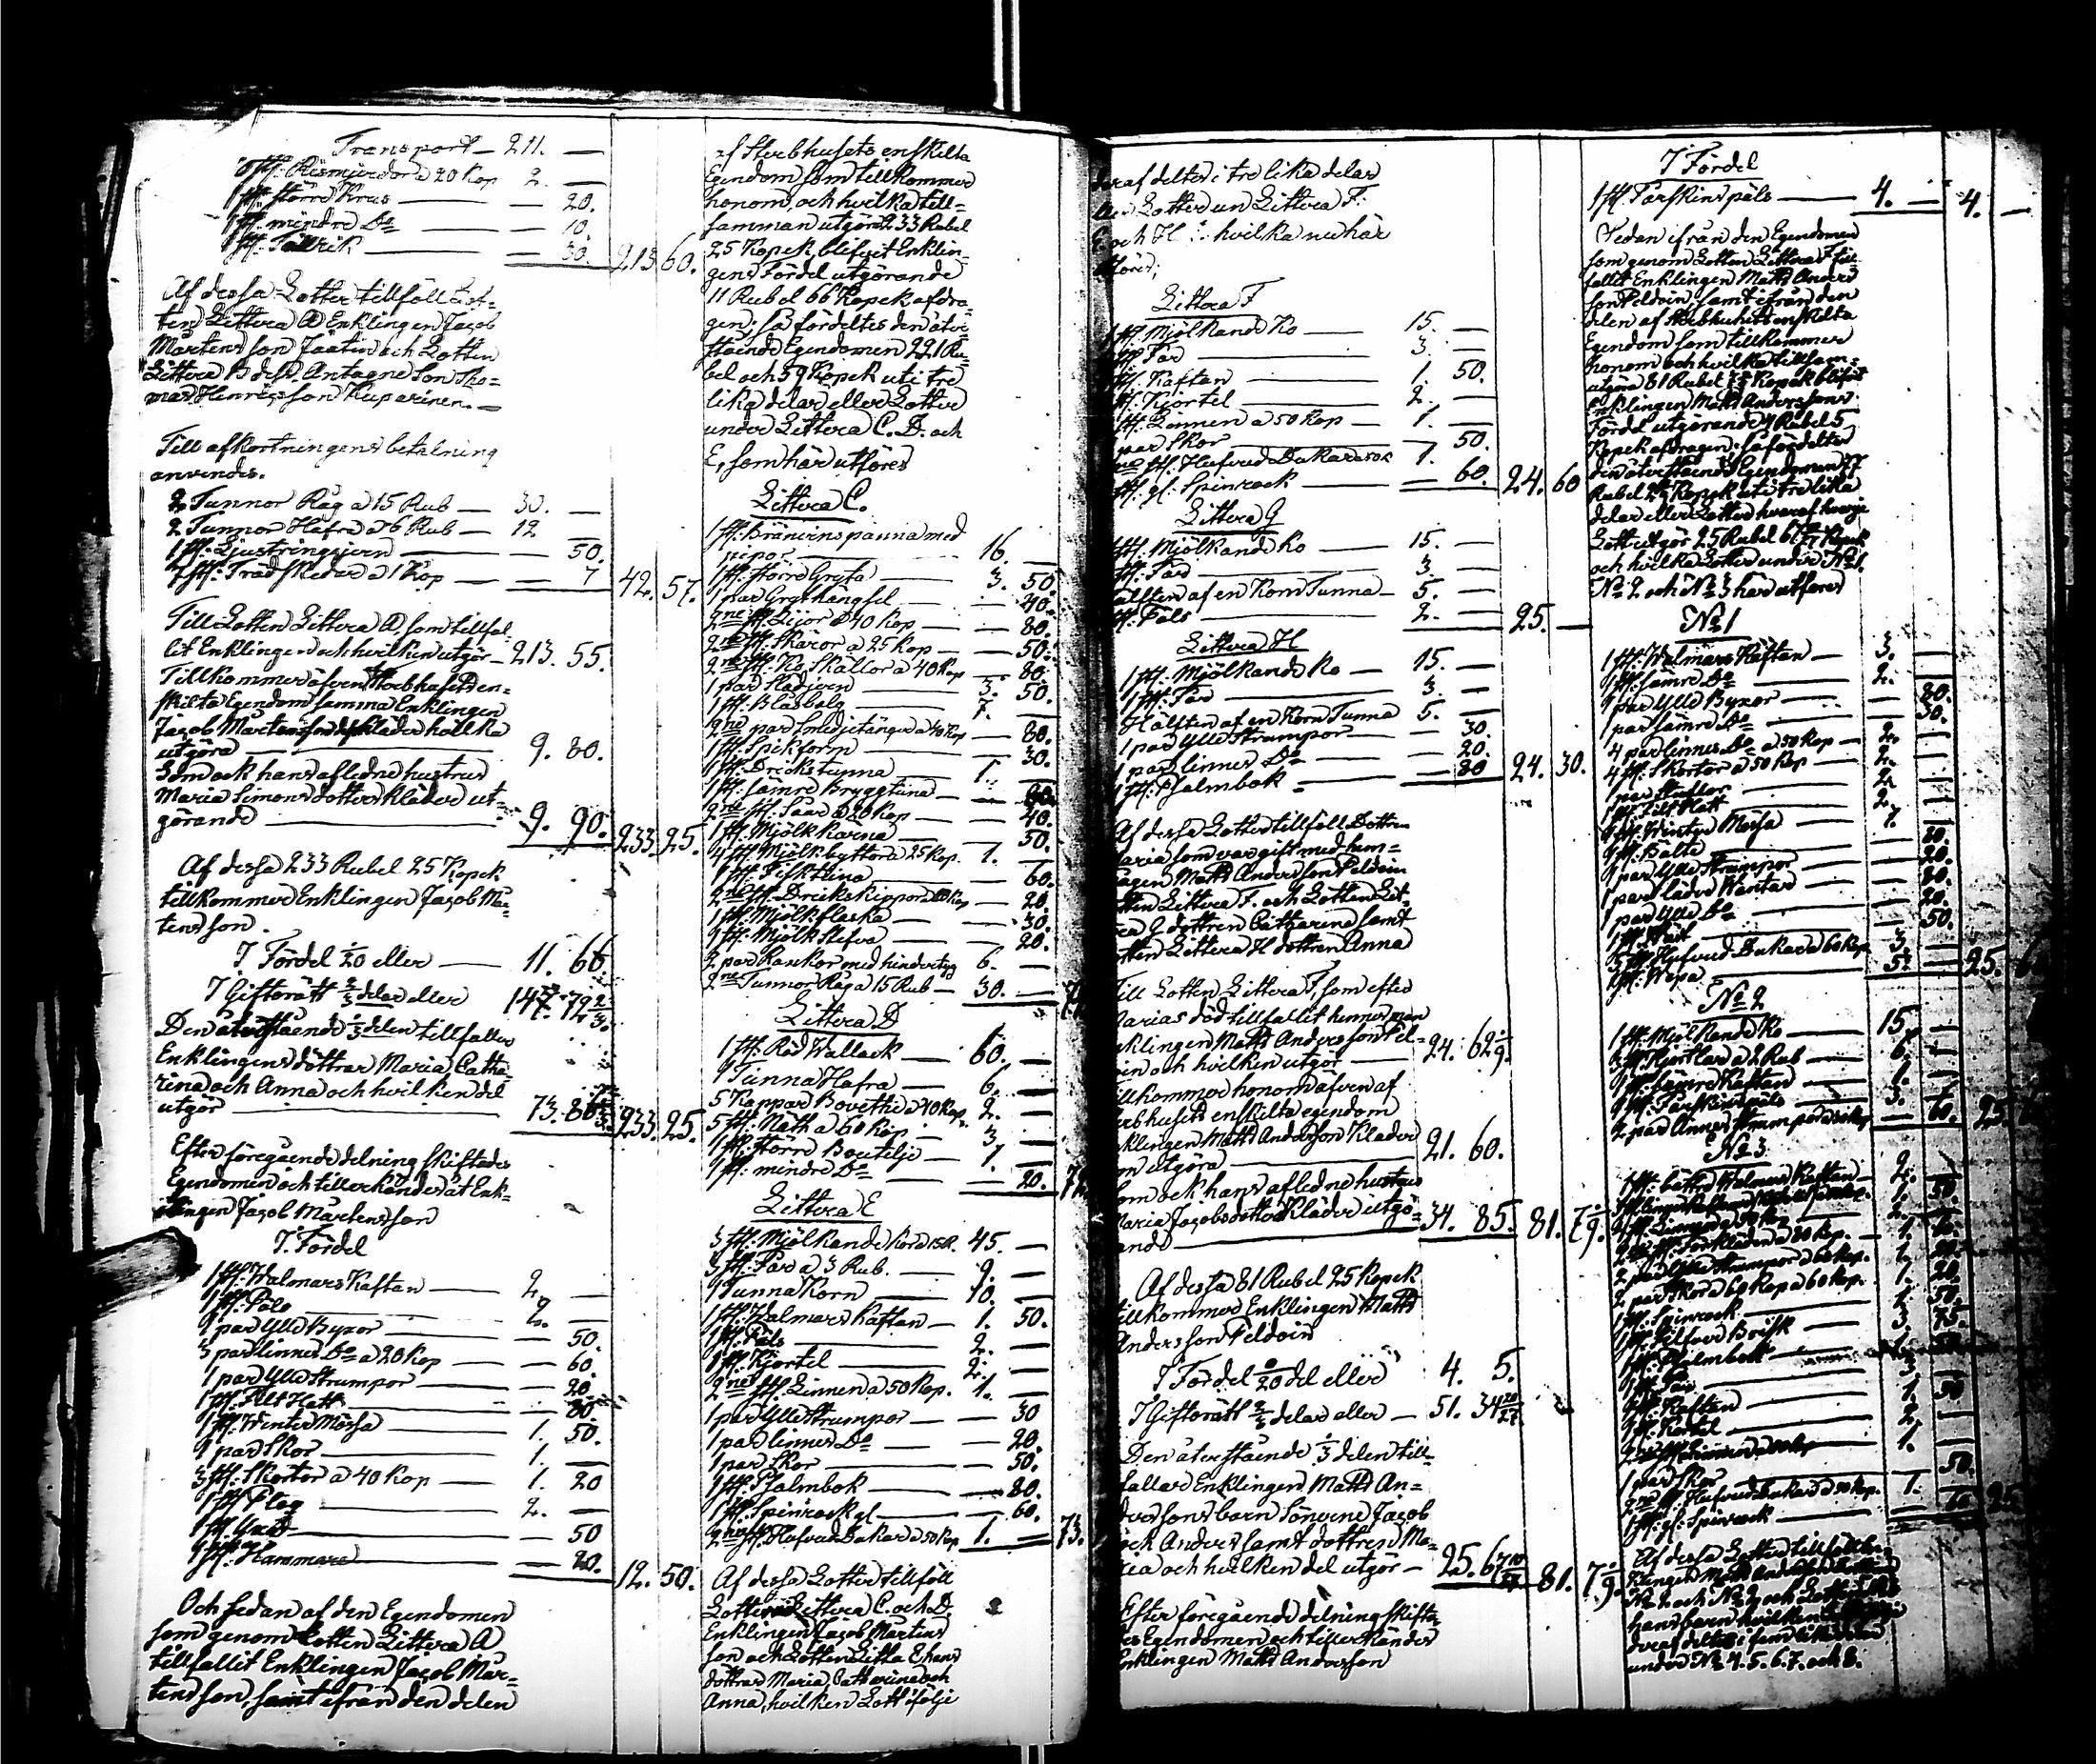 Transport — 211. —
Rismjerdor a 20 Kop 2. —
1 st. större Krus — — 20.
1 st. mindre Do — — 10.
1 st. Tällrik — — 30. 213. 60.
Af dessa Lotter tillföll Lot=
ten Littera A Enklingen Jacob
Mårtensson Jäätin och Lotten
Littera B dess Antagne Son Tho=
mas Henricsson Kuparinen. —
Till afkortningens betalning
anvendes.
2 Tunnor Råg a 15 Rub — 30. —
2 Tunnor Hafra a 6 Rub — 12 —
1 st. Ljustringsjern — — 50.
7 st. Träd Skedar a 1 Kop — — 7 42. 57.
Till Lotten Littera A, som tillfal=
lit Enklingen och hvilken utgör — 213. 55.
Tillkommer äfven Sterbhusets en=
skilta Egendom samma Enklingen
Jacob Mårtenssons kläder hvilka
utgöra — 9. 80.
Som ock hans afledne hustrus
Maria Simonsdotters kläder ut=
görande — 9. 90. 233. 25.
Af dessa 233 Rubel 25 Kopek
tillkommer Enklingen Jacob Mår=
tensson.
I Fördel 1/20 eller — 11. 66.
I Giftorätt 2/3 delar eller 147. 72 2/3.
Den återstående 1/3 delen tillfaller
Enklingens döttrar Maria, Catha=
rina och Anna och hvilken del
utgör — 73. 86 233. 25.
Efter föregående delning skiftades
Egendomen och tillerkändes åt Enk=
lingen Jacob Mårtensson
I Fördel
1 st. Walmars Kaftan — 2. —
1 st. Päls — 2. —
1 par Ylle Byxor — — 50.
3 par linnes Do a 20 Kop — — 60.
1 par Ylle Strumpor — — 20.
1 st. Filt Hatt — — 80.
1 st. Winter Mössa — 1. 50.
1 par Skor — 1. —
3 st. Skjortor a 40 Kop — 1. 20
1 st. Plog — 2. —
1 st. Yxa — — 50
1 st. Hammare — — 20. 12. 50.
Och sedan af den Egendomen
som genom Lotten Littera A
tillfallit Enklingen Jacob Mår=
tensson, samt ifrån den delen
af Sterbhusets enskilta
Egendom som tillkommer
honom, och hvilka till=
samman utgöra 233 Rubel
25 Kopek, blifvit Enklin=
gens Fördel utgörande
11 Rubel 66 Kopek afdra=
gen; så fördeltes den åter=
stående Egendomen 221 Ru=
bel och 59 Kopek uti tre
lika delar eller Lotter
under Littera C. D. och
E, som här utföres
Littera C.
1 st. Bränvinspanna med
pipor — 16. —
1 st. större Gryta — 3. 50.
1 par Grythängsel — — 40.
2ne st. Lijor a 40 Kop — — 80.
2ne st. Skäror a 25 Kop — — 50.
2ne st. Ko Skällor a 40 Kop — 80.
1 par Ladjern — 3. 50.
1 st. Blåsbalg — 7. —
2ne par Smedjetänger a 40 Kop — 80.
1 st. Spikform — — 30.
1 st. Drickstunna — 1. —
1 st. sämre Bryggtina —
2ne st. Såar a 20 Kop — — 40.
1 st. Mjölk kärna — — 50.
4 st. Mjölk byttor a 25 Kop. 1. —
1 st. Fisktina — — 60.
2ne st. Dricks kippor a 10 Kop — 20.
1 st. Mjölkflaska — — 30.
1 st. Mjölk Stefva — — 20.
2 par Rankor med hindertyg 6. —
2ne Tunnor Råg a 15 Rub — 30. —
Littera D
1 st. Röd Wallack — 60. —
1 Tunna Hafra — 6. —
5 Kappar Bovethe a 40 Kop. 2. —
5 st. Näth a 60 Kop — 3. —
1 st. större Boutelje — 1. —
1 st. mindre Do — — 20.
Littera E
3 st. Mjölkande Kor a 15 R. 45. —
3 st. Får a 3 Rub. — 9. —
1 Tunna Korn — 10. —
1 st. Walmars Kaftan — 1. 50.
1 st. Päls — 2. —
1 st. Kjortel — 2. —
2ne st. Linnen a 50 Kop. 1. —
1 par Ylle Strumpor — — 30
1 par linnes Do — — 20.
1 par Skor — — 50.
1 st. Psalmbok — — 80.
1 st. Spinrock gl — — 60.
2ne st. Hufvud Dukar a 50 Kop 1. — 73.
Af dessa Lotter tillföll
Lotterna Littera C. och D.
Enklingen Jacob Mårtens
son och Lotten Littera E hans
döttrar Maria, Catharina och
Anna, hvilken Lott ifölje
deraf deltes i tre lika delar
eller Lotter under Littera F.
G. och H. hvilka nu här
utföres;
Littera F
1 st. Mjölkande Ko — 15. —
1 st. Får — 3. —
1 st. Kaftan — 1. 50.
1 st. Kjortel — 2. —
2 st. Linnen a 50 Kop — 1. —
1 par Skor — — 50.
2ne st. Hufvud Dukar a 50 K 1. —
1 st. gl. Spinrock — — 60. 24. 60
Littera G
1 st. Mjölkande Ko — 15. —
1 st. Får — 3. —
Hälften af en Korn Tunna — 5. —
1 st. Päls — 2. — 25. —
Littera H
1 st. Mjölkande Ko — 15. —
1 st. Får — 3. —
Hälften af en Korn Tunna 5. —
1 par Ylle Strumpor — — 30.
1 par linnes Do — — 20.
1 st. Psalmbok — — 80 24. 30.
Af dessa Lotter tillföll Dottren
Maria som var gift med hem=
magen Matts Andersson Peldoin
Lotten Littera F. och Lotten Lit=
tera G dottren Catharina samt
Lotten Littera H dottren Anna
Till Lotten Littera F, som efter
Marias död tillfallit hennes man
Enklingen Matts Andersson Pel=
doin och hvilken utgör — 24. 62 2/9.
Tillkommer honom äfven af
Sterbhusets enskilta egendom
Enklingen Matts Andersson Kläder
som utgöra — 21. 60.
Som ock hans afledne hustrus
Maria Jacobsdotters Kläder utgö=
rande — 34. 85. 81. 7 2/9.
Af dessa 81 Rubel 25 Kopek
tillkommer Enklingen Matts
Andersson Peldoin
I Fördel 1/20 del eller 4. 5.
I Giftorätt 2/3 delar eller — 51. 34 22/27
Den återstående 1/3 delen till=
faller Enklingen Matts An=
derssons barn Sönerne Jacob
och Anders samt dottren Ma=
ria och hvilken del utgör — 25. 67 81. 7 2/9.
Efter föregående delning skifta=
des Egendomen och tillerkändes
Enklingen Matts Andersson
I Fördel
1 st. Fårskins päls — 4. — 4. —
Sedan ifrån den Egendomen
som genom Lotten Littera F till=
fallit Enklingen Matts Anders
son Peldoin, samt ifrån den
delen af Sterbhusets enskilta
Egendom som tillkommer
honom och hvilka tillsam=
utgöra 81 Rubel Kopek blifvit
Enklingen Matts Anderssons
Fördel utgörande 4 Rubel 5
Kopek afdragen; så fördeltes
den återstående Egendomen 77
Rubel Kopek uti tre lika
delar eller Lotter hvaraf hvarje
Lott utgör 25 Rubel Kopek
och hvilka Lotter under No 1.
No 2 och No 3 här utföres
No 1
1 st. Walmars Kaftan — 3. —
1 st. sämre Do — 2. —
1 par Ylle Byxor — — 80.
1 par sämre Do — — 30.
4 par linnes Do a 50 Kop — 2. —
4 st. Skjortor a 50 Kop — 2. —
1 par Stöflor — 2. —
1 st. Filt Hatt — 2. —
1 st. Winter Mössa — 1. —
1 st. Bälte — — 20.
1 par Ylle Strumpor — — 20.
1 par läder Wantar — — 30.
1 par Ylle Do — — 20.
1 st. Wäst — — 50.
5 st. Hufvud Dukar a 60 Kop. 3. —
1 st. Wepa — 5. — 25.
No 2
1 st. Mjölkande Ko — 15. —
3 st. Kjortlar a 2 Rub — 6. —
1 st. sämre Kaftan — 1. —
1 st. Fårskins päls — 3. —
2 par Annes Strumpor a 30 Kop — 60. 25.
No 3
1 st. bättre Walmars Kaftan — 2. —
2 par Ylle Strumpor a 60 Kop.
2 par Skor a 60 Kop
1 st. Spinrock —
1 st. Silfver Brisk — 3. 75.
1 st. Psalmbok —
1 st. Får — 3. —
1 st. Kaftan — 1. 50
1 st. Kjortel — 2. —
2ne st. Linnen a 50 Kop 1. —
1 par Skor — 50.
2ne st. Hufvud Dukar a 50 Kop. 1. —
1 st. gl. Spinrock — 60 25.
Af dessa Lotter tillföll
No 2 och
hans barn hvilken
deraf deltes i fem lika delar
under No 4. 5. 6. 7. och 8.